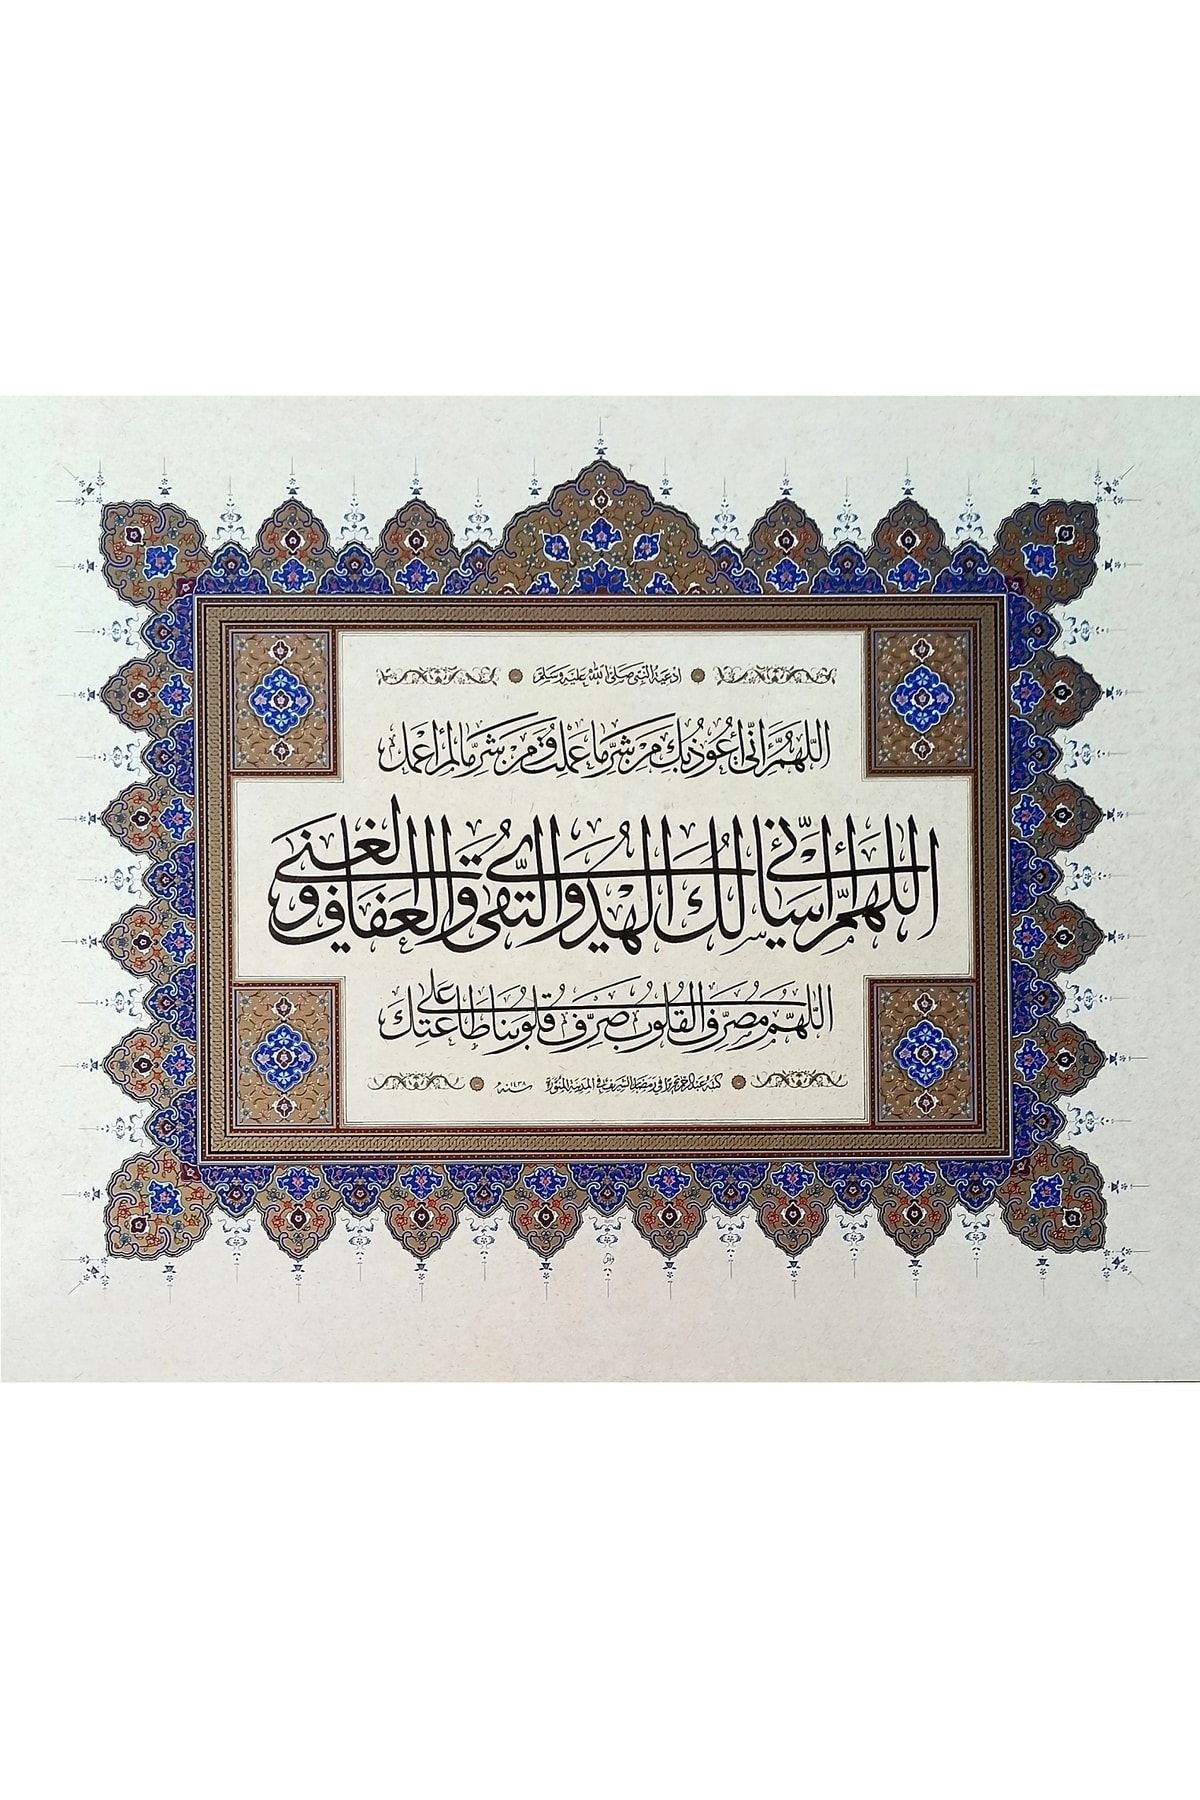 ادعية النبي صلى الله عليه وسلم
اللهم إني أعوذ بك من شر ما عملت ومن شر ما لم أعمل
اللهم إني أسألك الهدى والتقى والعفاف والغنى
اللهم مصرف القلوب صرف قلوبنا على طاعتك
كتبه في رمضان الشريف في المدينة المنورة سنه